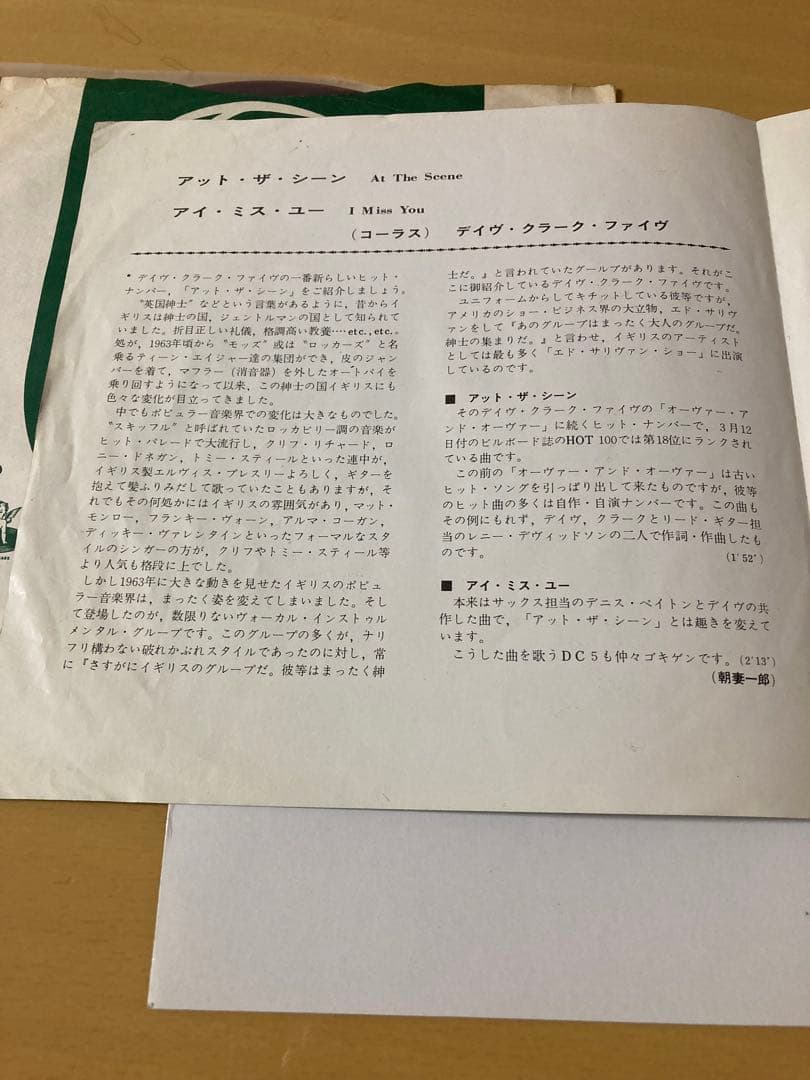 アット・ザ・シーン At The Scene
アイ・ミス・ユー I Miss You
(コーラス) デイヴ・クラーク・ファイヴ
* デイヴ・クラーク・ファイヴの一番新らしいヒット・
ナンバー,「アット・ザ・シーン」をご紹介しましょう。
〝英国紳士〞などという言葉があるように, 昔からイ
ギリスは紳士の国, ジェントルマンの国として知られて
いました。折目正しい礼儀, 格調高い教養‥‥etc., etc.。
処が, 1963年頃から〝モッズ〞或は〝ロッカーズ〞と名
乗るティーン・エイジャー達の集団ができ, 皮のジャン
バーを着て, マフラー (消音器) を外したオートバイを
乗り回すようになって以来, この紳士の国イギリスにも
色々な変化が目立ってきました。
中でもポピュラー音楽界での変化は大きなものでした。
〝スキッフル〞と呼ばれていたロッカビリー調の音楽が
ヒット・パレードで大流行し, クリフ・リチャード, ロ
ニー・ドネガン, トミー・スティールといった連中が,
イギリス製エルヴィス・プレスリーよろしく, ギターを
抱えて髪ふりみだして歌っていたこともありますが, そ
れでもその何処かにはイギリスの雰囲気があり, マット・
モンロー, フランキー・ヴォーン, アルマ・コーガン,
ディッキー・ヴァレンタインといったフォーマルなスタ
イルのシンガーの方が, クリフやトミー・スティール等
より人気も格段に上でした。
しかし1963年に大きな動きを見せたイギリスのポピュ
ラー音楽界は, まったく姿を変えてしまいました。そし
て登場したのが, 数限りないヴォーカル・インストゥル
メンタル・グループです。このグループの多くが, ナリ
フリ構わない破れかぶれスタイルであったのに対し, 常
に『さすがにイギリスのグループだ。彼等はまったく紳
士だ。』と言われていたグループがあります。それがこ
こに御紹介しているデイヴ・クラーク・ファイヴです。
ユニフォームからしてキチットしている彼等ですが,
アメリカのショー・ビジネス界の大立物, エド・サリヴ
ァンをして『あのグループはまったく大人のグループだ。
紳士の集まりだ。』と言わせ, イギリスのアーティスト
としては最も多く「エド・サリヴァン・ショー」に出演
しているのです。
■ アット・ザ・シーン
そのデイヴ・クラーク・ファイヴの「オーヴァー・ア
ンド・オーヴァー」に続くヒット・ナンバーで, 3月12
日付のビルボード誌のHOT 100では第18位にランクされ
ている曲です。
この前の「オーヴァー・アンド・オーヴァー」は古い
ヒット・ソングを引っぱり出して来たものですが, 彼等
のヒット曲の多くは自作・自演ナンバーです。この曲も
その例にもれず, デイヴ, クラークとリード・ギター担
当のレニー・デヴィッドソンの二人で作詞・作曲したも
のです。 (1′52″)
■ アイ・ミス・ユー
本来はサックス担当のデニス・ペイトンとデイヴの共
作した曲で,「アット・ザ・シーン」とは趣きを変えて
います。
こうした曲を歌うDC5も仲々ゴキゲンです。(2′13″)
(朝妻一郎)